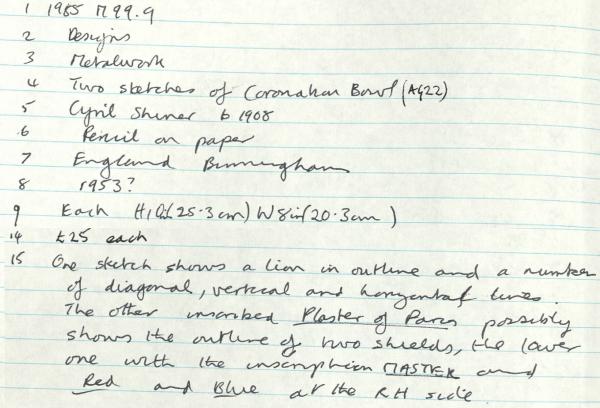 1 1985 M99.9
2 Designs
3 Metalwork
4 Two sketches of Coronation Bowl (Ag22)
5 Cyril Shiner b 1908
6 Pencil on paper
7 England Birmingham
8 1953?
9 Each H10in(25.3cm) W8in(20.3cm)
14 £25 each
15 One sketch shows a lion in outline and a number
of diagonal, vertical and horizontal lines.
The other inscribed Plaster of Paris possibly
shows the outline of two shields, the lower
one with the inscription MASTER and
Red and Blue at the RH side